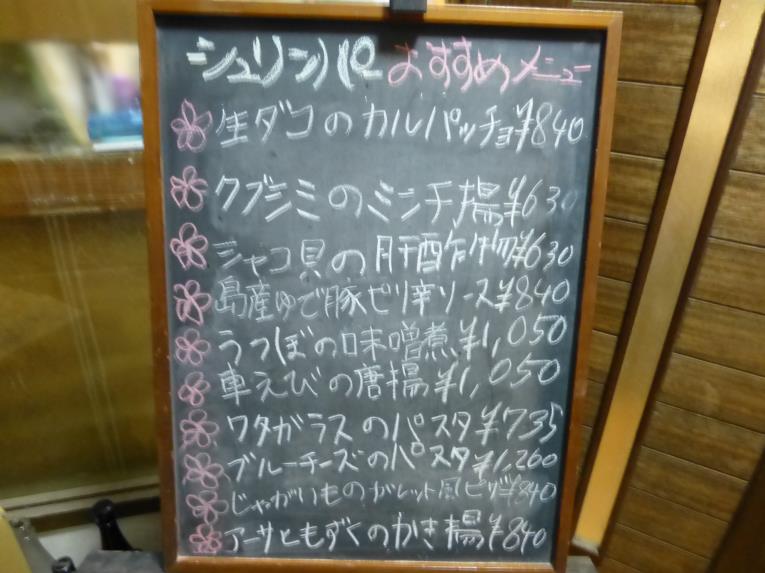 シュリンパ おすすめメニュー
生ダコのカルパッチョ¥840
クブシミのミンチ揚¥630
シャコ貝の肝酢の物¥630
島産ゆで豚ピリ辛ソース¥840
うつぼの味噌煮¥1,050
車えびの唐揚¥1,050
ワタガラスのパスタ¥735
ブルーチーズのパスタ¥1,260
じゃがいものガレット風ピザ¥840
アーサともずくのかき揚¥840